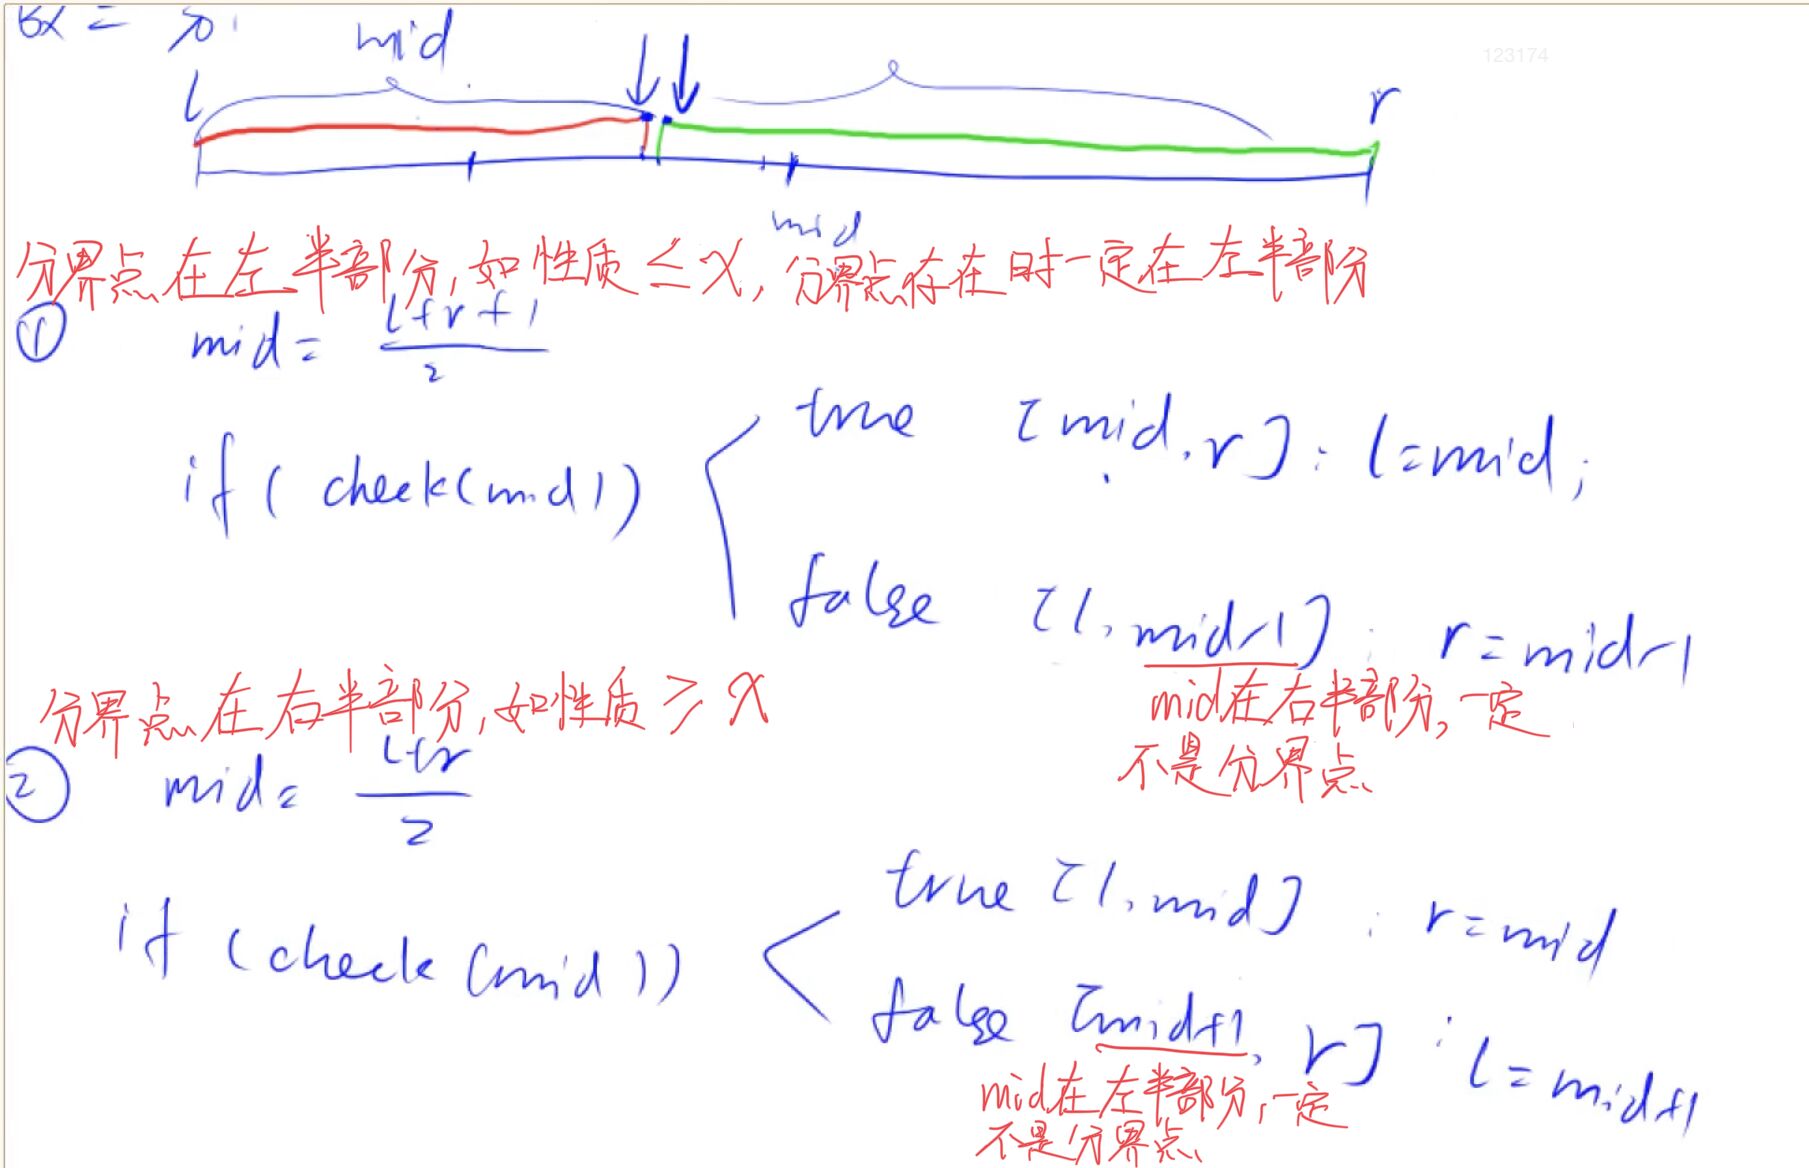 mid
123174
l
r
mid
分界点在左半部分,如性质≤x,分界点存在时一定在左半部分
① mid = (l+r+1)/2
if ( check(mid) )
true [mid, r] : l=mid;
false [l, mid-1] : r=mid-1
mid在右半部分,一定
不是分界点
分界点在右半部分,如性质≥x
② mid = (l+r)/2
if (check (mid))
true [l, mid] : r=mid
false [mid+1, r] : l=mid+1
mid在左半部分,一定
不是分界点